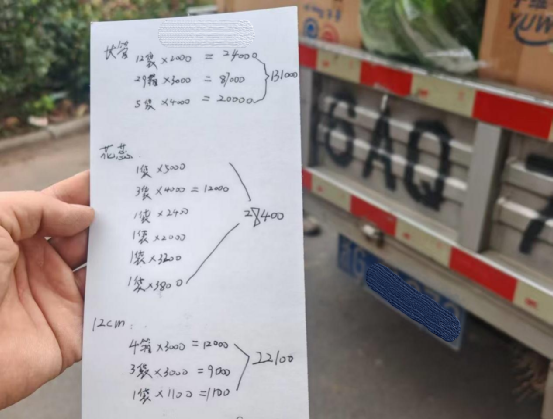 长管
12袋×2000 = 24000
29箱×3000 = 87000
5袋×4000 = 20000
131000
花蕊
1袋×3000
3袋×4000 = 12000
1袋×2400
1袋×2000
1袋×3200
1袋×3800
400
12cm:
4箱×3000 = 12000
3袋×3000 = 9000
1袋×1100 = 1100
22100
6AQ
7
YUW